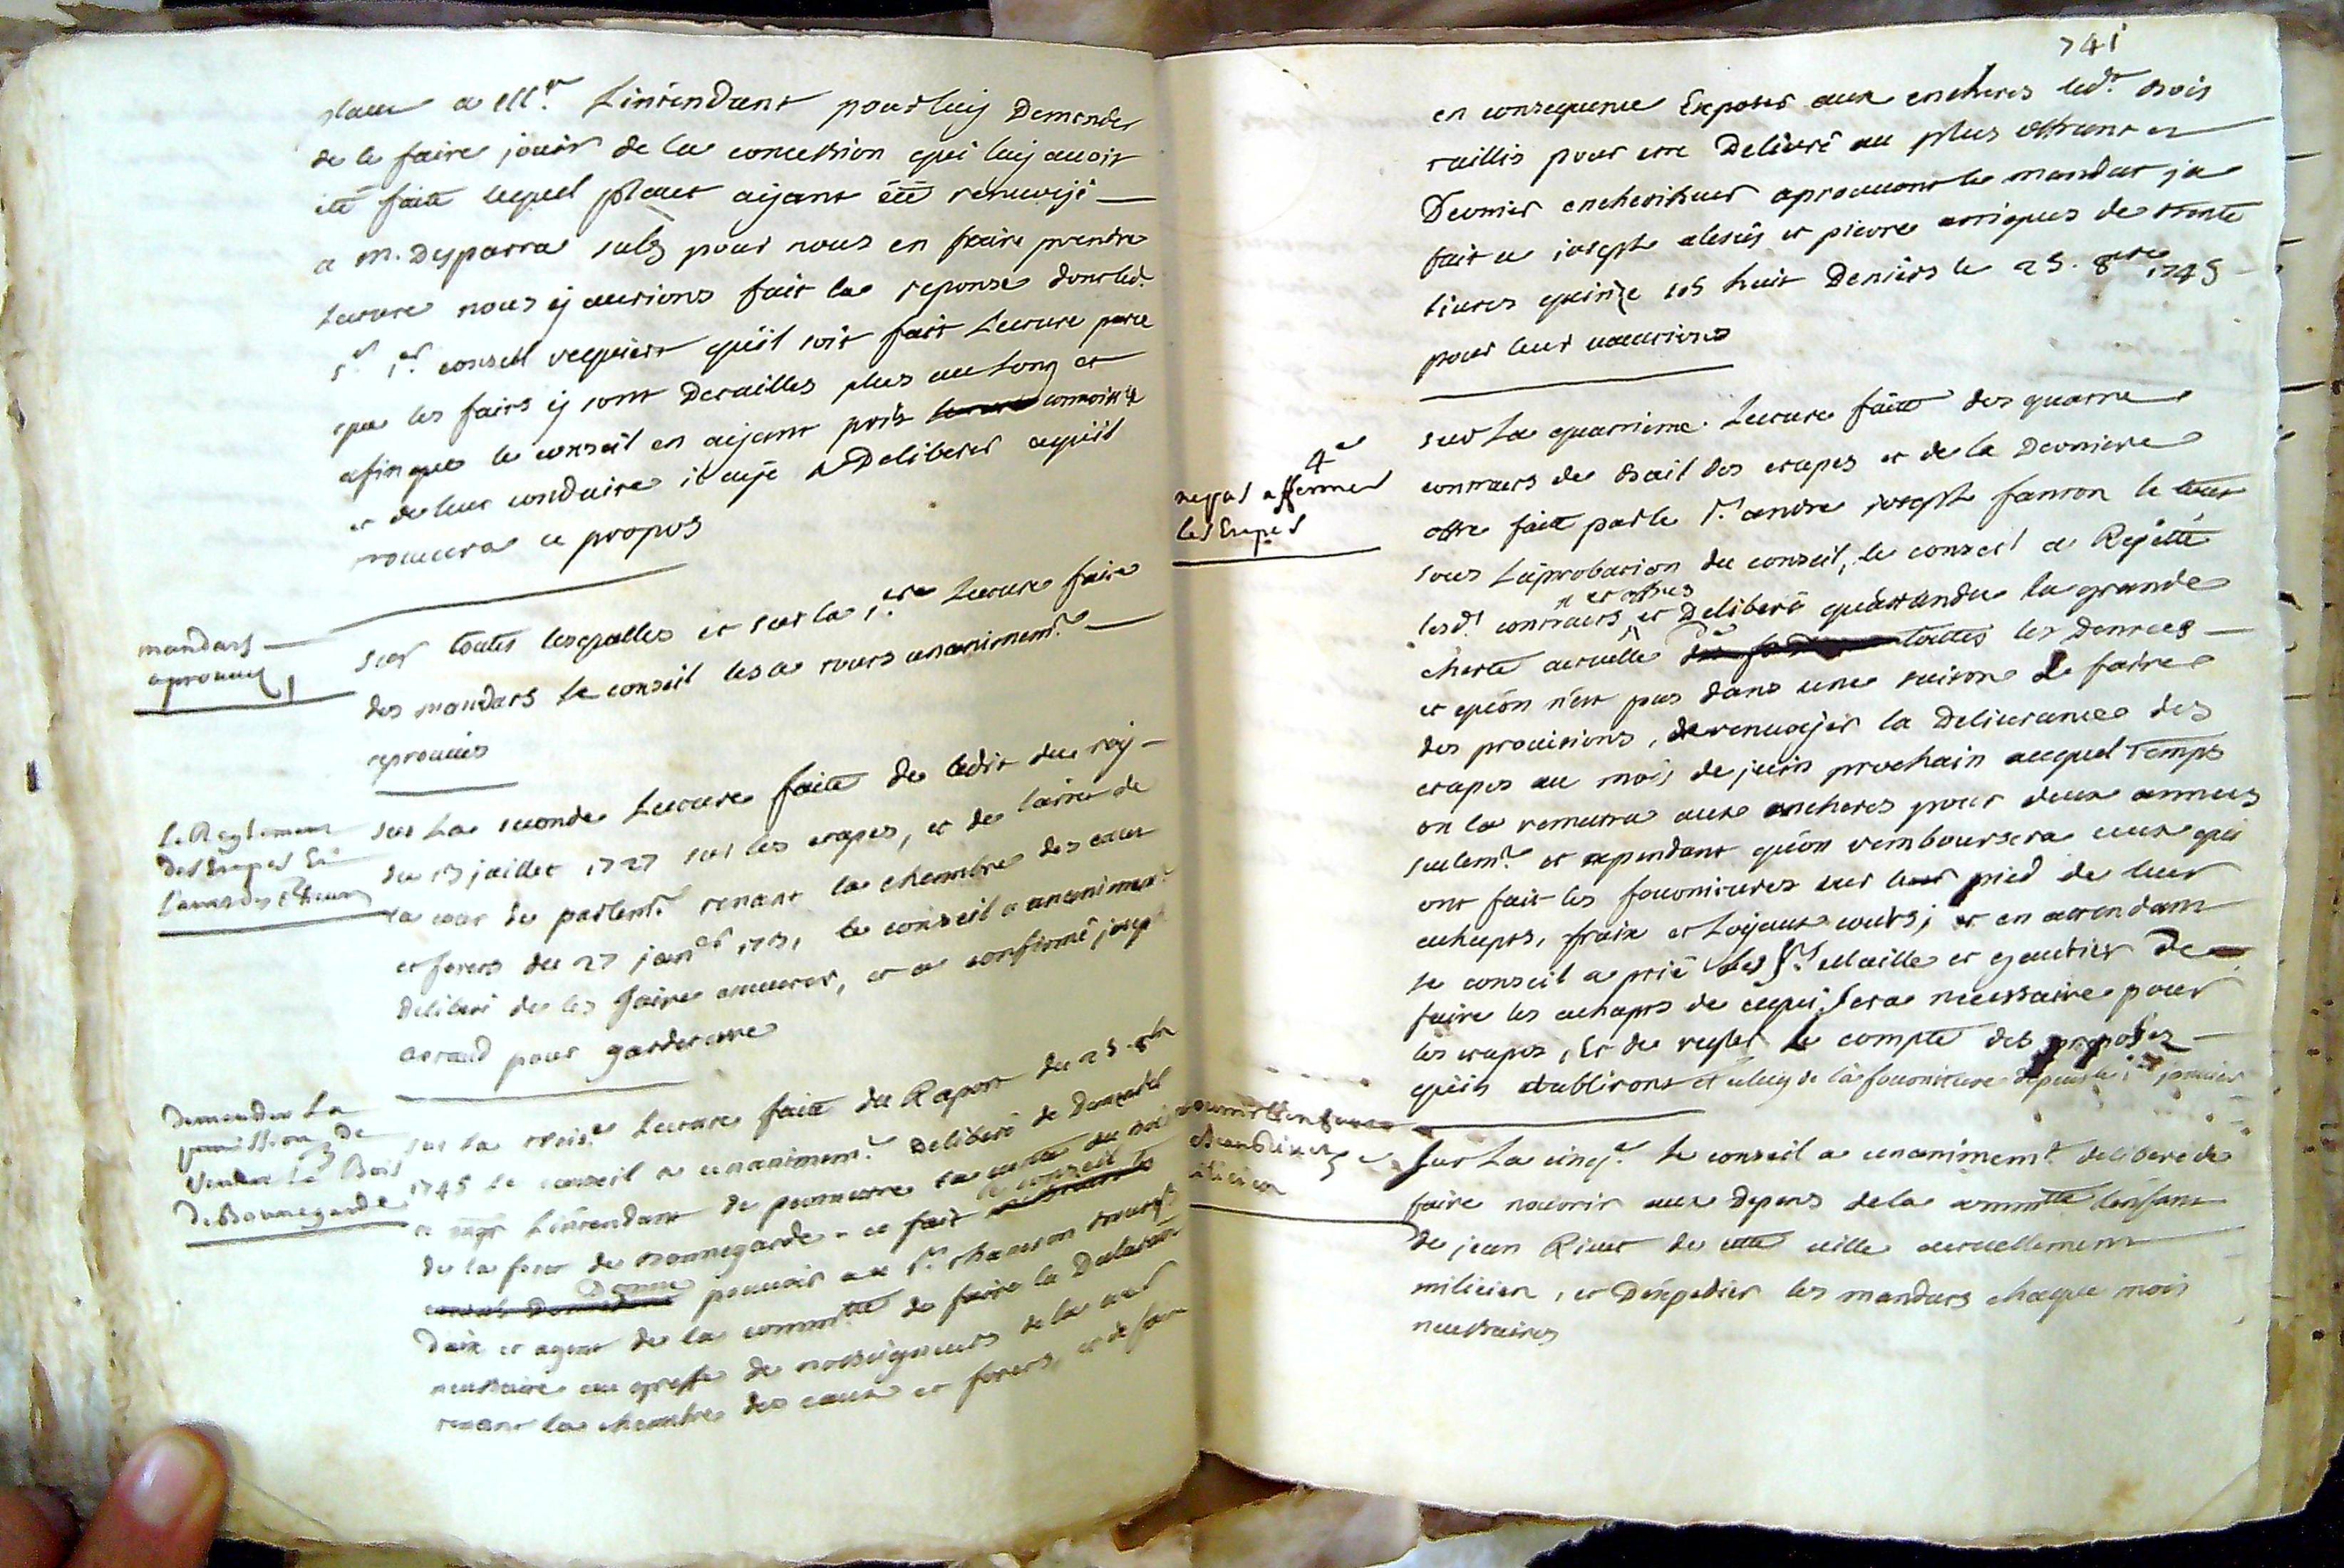 placet a Mr. L'intendant pour luy Demander
de le faire jouir de la concession qui luy avoit
été faite lequel placet aÿant été renvoÿé
a m. Desparra subg pour nous en faire prendre
lecture nous ÿ aurions fait la reponse dont led.
sr. 1er. consul requiert qu'il soit fait Lecture parce
que les faits ÿ sont Detailles plus au Long et
afin que le conseil en aÿant pris connoissce
et de leur conduite il aÿe a Deliberer ce qu'il
trouvera a propos
mandats
aprouvés
Sur toutes lesquelles et sur la 1ere Lecture faite
des mandats Le conseil les a tous unanimemt.
aprouvés
Le Reglement
des Etapes Et
sur La seconde Lecture faite de ledit du roy
du 13 juillet 1727 sur les etapes, et de larret de
la cour du parlemt. tenant la chambre des eaux
et forets du 27 janer 1731 le conseil a unanimemt.
deliberé de les faire executer, et a confirmé joseph
Arnaud pour garde terre
Demander La
permission de
Vendre Le Bois
De Bonnegarde
sur la trois.e Lecture faite du Raport du 25. 8bre
1745 Le conseil a unanimemt. Deliberé de Demander
a mgr L'intendant de permettre la coupe du bois
de la foret de Bonnegarde - ce fait le conseil
Donne pouvoir au sr. chanson
Daix et agent de la commté de faire la Declaration
necessaire au greffe de nosseigneurs de la cour
tenant la chambre des eaux et forets, et de faire
741
en consequence Exposer aux encheres led.t bois
taillis pour etre Delivré au plus offrant et
Dernier encherisseur aprouvant le mandat ja
fait a joseph alexis et pierre arriques de trente
livres quinze sols huit Deniers le 25. 8bre 1745
pour leur vacations
4e
ne pas affermer
les Etapes
Sur La quatrieme Lecture faite des quatre
contracts de Bail des etapes et de la Derniere
offre faite par le sr. andre joseph fanton le tout
sous L'aprobation du conseil, le conseil a Rejetté
lesd.t contracts et offres et Deliberé qu'attandu la grande
cherté actuelle de toutes les Denrees
et qu'on n'est pas dans une saison de faire
des provisions, de renvoÿer la Delivrance des
etapes au mois de juin prochain auquel temps
on la remettra aux encheres pour deux annees
seulemt. et cependant qu'on remboursera ceux qui
ont fait les fournitures sur le pied de leur
achapts, fraix et Loÿaux couts; et en attendant
le conseil a prié les srs. Maille et gautier De
faire les achapts de ce qui sera necessaire pour
les etapes, Et de regler le compte des preposés
qu'ils etablirons et celuy de la fourniture depuis le 1er janvier
Sur La cinq.e Le conseil a unanimemt deliberé de
faire nourrir aux Depens de la commté l'enfant
de jean Rivet de cette ville actuellement
milicien, et D'expedier les mandats chaque mois
necessaires